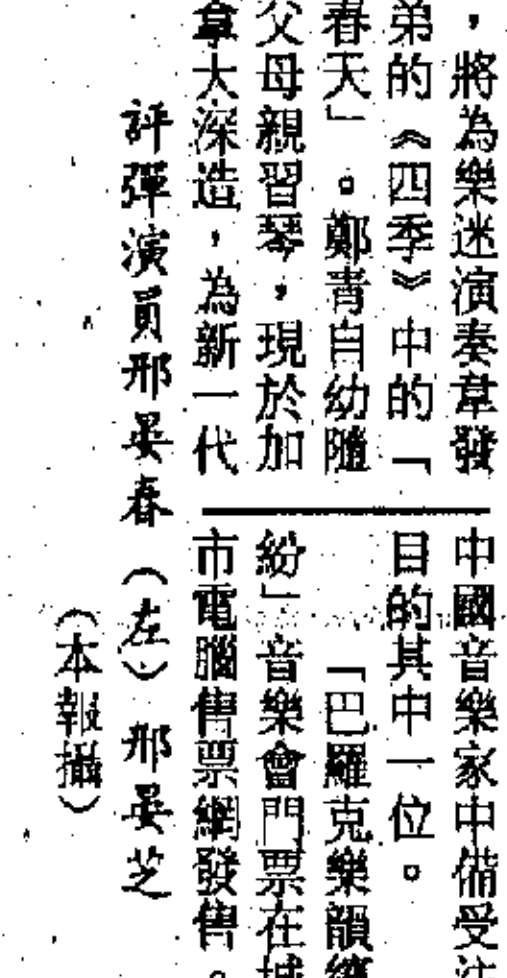 ，將為樂迷演奏韋發
弟的《四季》中的「
春天」。鄭青自幼隨
父母親習琴，現於加
拿大深造，為新一代
中國音樂家中備受注
目的其中一位。
「巴羅克樂韻繽
紛」音樂會門票在城
市電腦售票網發售。
評彈演員邢晏春（左）邢晏芝
（本報攝）